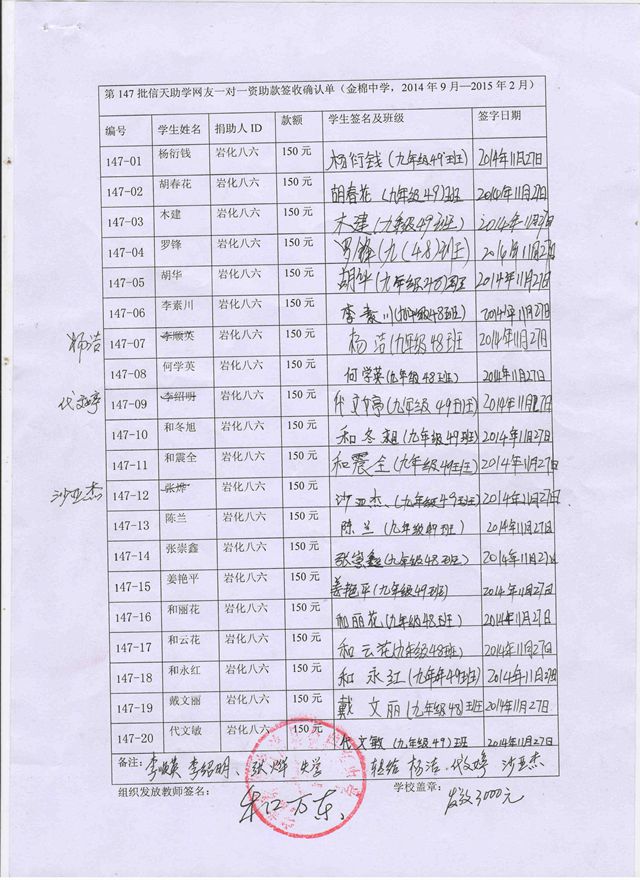 第 147 批信天助学网友一对一资助款签收确认单（金棉中学，2014 年 9 月—2015 年 2 月）
编号 学生姓名 捐助人 ID 款额 学生签名及班级 签字日期
147-01 杨衍钱 岩化八六 150 元 杨衍钱（九年级49班） 2014年11月27日
147-02 胡春花 岩化八六 150 元 胡春花（九年级49）班 2014年11月27日
147-03 木建 岩化八六 150 元 木建（九年级49班） 2014年11月27日
147-04 罗锋 岩化八六 150 元 罗锋（九（48）班） 11月27日
147-05 胡华 岩化八六 150 元 胡华（九年级 2014年11月27日
147-06 李素川 岩化八六 150 元 李素川（九年级48班） 2014年11月27日
杨洁 147-07 李顺英 岩化八六 150 元 杨洁（九年级48班 2014年11月27日
147-08 何学英 岩化八六 150 元 何学英（九年级48班） 2014年11月27日
代文婷 147-09 李绍明 岩化八六 150 元 代文婷（九年级49班） 2014年11月27日
147-10 和冬旭 岩化八六 150 元 和冬旭（九年级49班） 2014年11月27日
147-11 和震全 岩化八六 150 元 和震全（九年级49班） 2014年11月27日
沙亚杰 147-12 张烨 岩化八六 150 元 沙亚杰（九年级49班） 2014年11月27日
147-13 陈兰 岩化八六 150 元 陈兰（九年级49班） 2014年11月27日
147-14 张崇鑫 岩化八六 150 元 张崇鑫（九年级48班） 2014年11月27日
147-15 姜艳平 岩化八六 150 元 姜艳平（九年级49班） 2014年11月27日
147-16 和丽花 岩化八六 150 元 和丽花（九年级48班） 2014年11月27日
147-17 和云花 岩化八六 150 元 和云花（九年级48班） 2014年11月27日
147-18 和永红 岩化八六 150 元 和永红（九年年49班） 2014年11月27日
147-19 戴文丽 岩化八六 150 元 戴文丽（九年级48）班 2014年11月27日
147-20 代文敏 岩化八六 150 元 代文敏（九年级49）班 2014年11月27日
备注： 李顺英、李绍明、张烨 失学 转给 杨洁、代文婷 沙亚杰
组织发放教师签名： 万东 学校盖章： 发放3000元